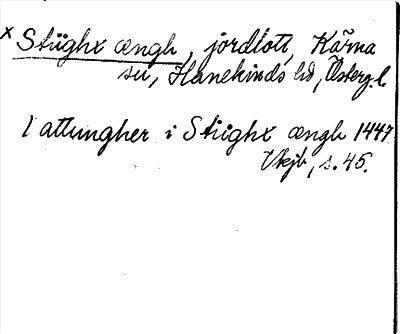 x Stüghx ængh, jordlott, Kärna
sn, Hanekinds hd, Österg. l.
1 attungher i Stüghx ængh 1447
Vkjb, s. 45.